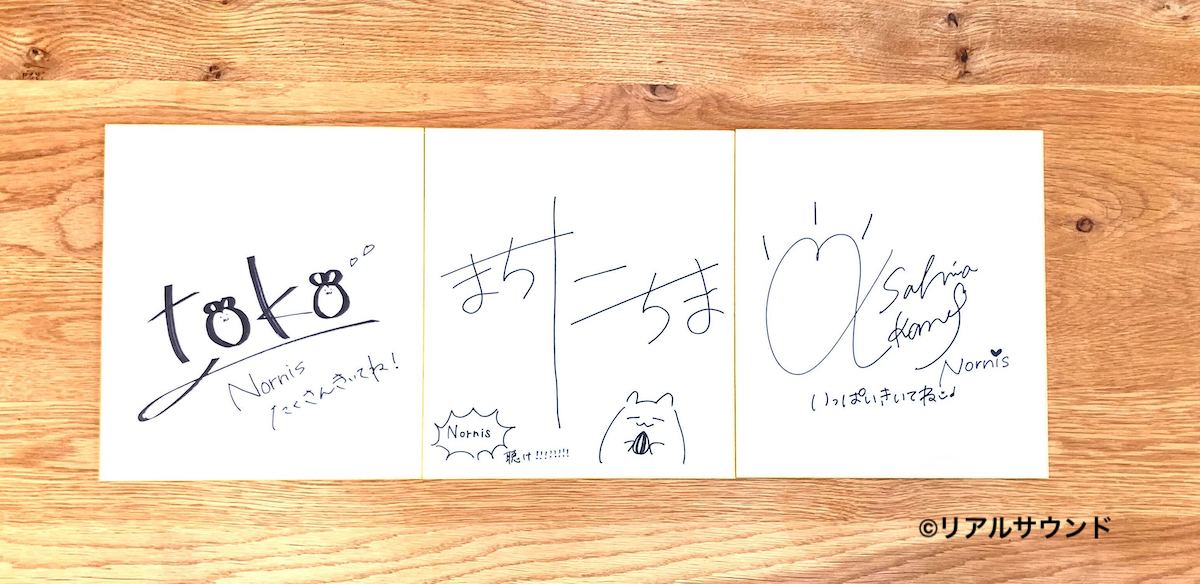 toko
Nornis
たくさんきいてね！
まちたちま
Nornis
聴け!!!!!!!!
Nornis
いっぱいきいてね♪
©リアルサウンド